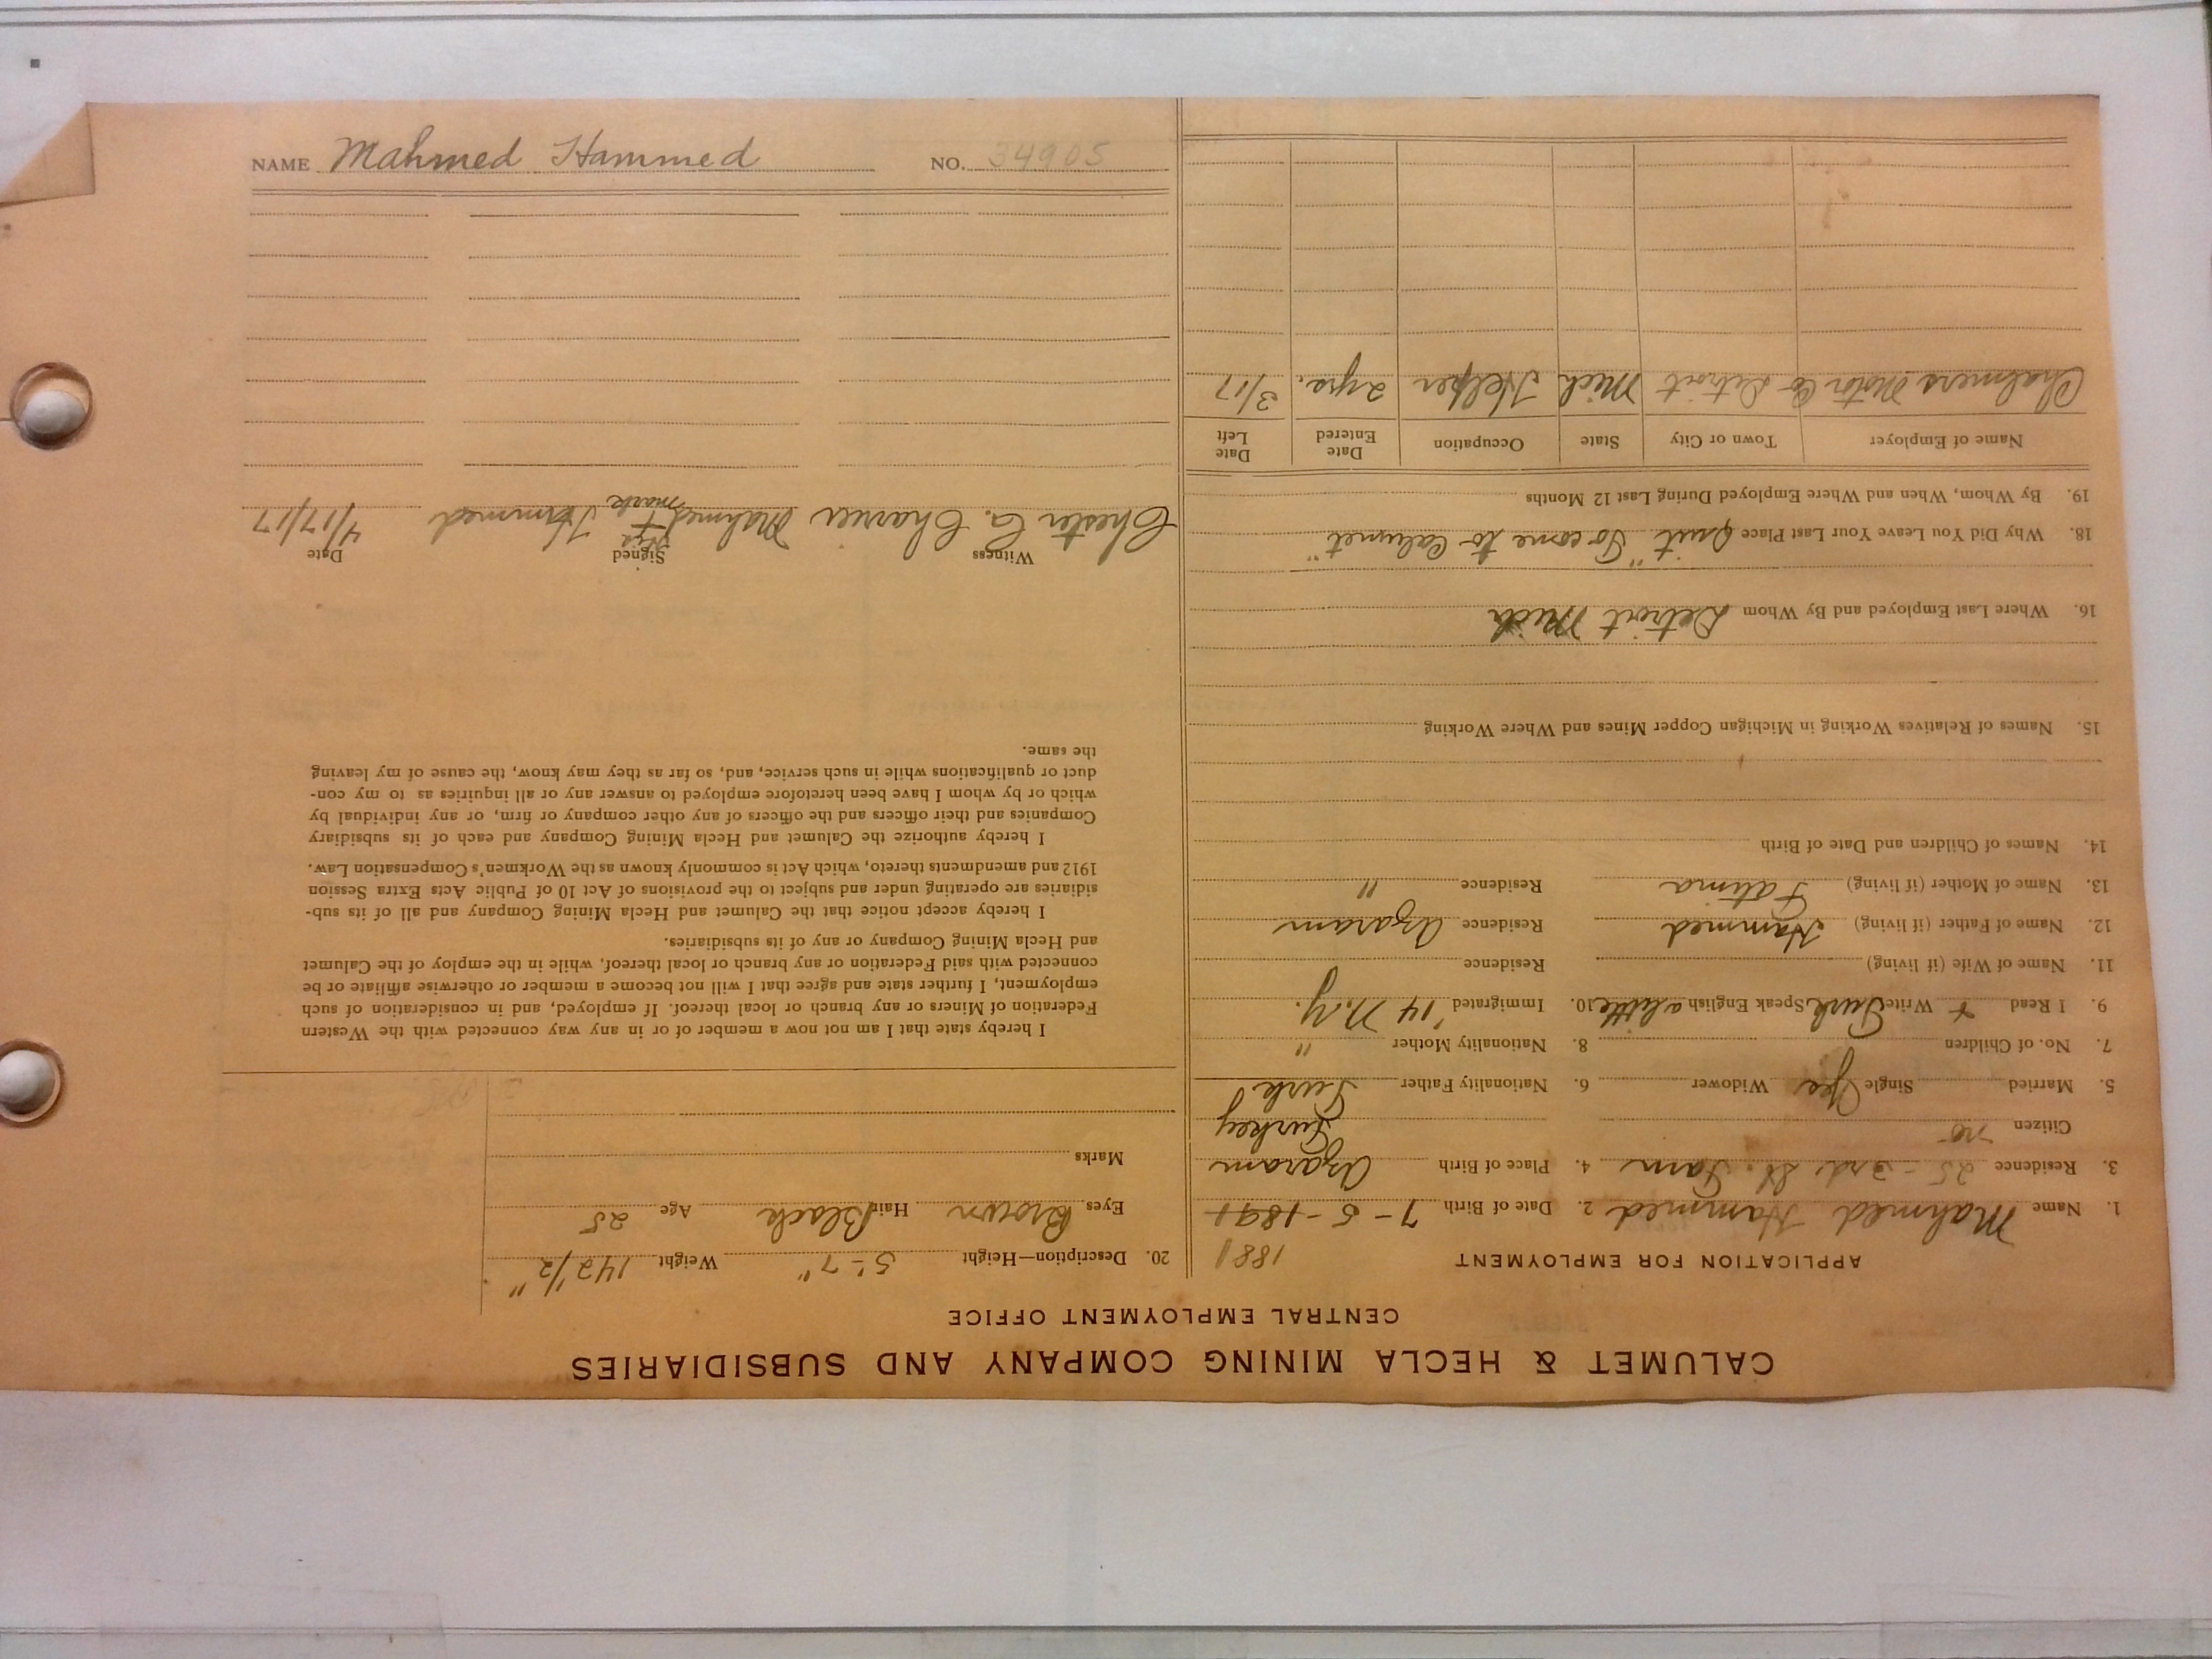 CALUMET & HECLA MINING COMPANY AND SUBSIDIARIES
CENTRAL EMPLOYMENT OFFICE
APPLICATION FOR EMPLOYMENT 1881
1. Name Mahmed Hammed 2. Date of Birth 7-5-1891
3. Residence 25-3rd St. 4. Place of Birth Azaram
Citizen no Turkey
5. Married Single Yes Widower 6. Nationality Father Turk
7. No. of Children 8. Nationality Mother "
9. I Read + Write Turk Speak English a little 10. Immigrated '14 N.Y.
11. Name of Wife (if living) Residence
12. Name of Father (if living) Hammed Residence Azaram
13. Name of Mother (if living) Fatima Residence "
14. Names of Children and Date of Birth
15. Names of Relatives Working in Michigan Copper Mines and Where Working
16. Where Last Employed and By Whom Detroit Mich
18. Why Did You Leave Your Last Place Quit "To come to Calumet"
19. By Whom, When and Where Employed During Last 12 Months
Name of Employer Town or City State Occupation Date Entered Date Left
Chalmers Motor Co Detroit Mich Helper 2 yrs. 3/17
20. Description—Height 5'-7" Weight 142 1/2"
Eyes Brown Hair Black Age 25
Marks
I hereby state that I am not now a member of or in any way connected with the Western
Federation of Miners or any branch or local thereof. If employed, and in consideration of such
employment, I further state and agree that I will not become a member or otherwise affiliate or be
connected with said Federation or any branch or local thereof, while in the employ of the Calumet
and Hecla Mining Company or any of its subsidiaries.
I hereby accept notice that the Calumet and Hecla Mining Company and all of its sub-
sidiaries are operating under and subject to the provisions of Act 10 of Public Acts Extra Session
1912 and amendments thereto, which Act is commonly known as the Workmen's Compensation Law.
I hereby authorize the Calumet and Hecla Mining Company and each of its subsidiary
Companies and their officers and the officers of any other company or firm, or any individual by
which or by whom I have been heretofore employed to answer any or all inquiries as to my con-
duct or qualifications while in such service, and, so far as they may know, the cause of my leaving
the same.
Witness Signed Date
Chester G. Mahmed His + mark Hammed 4/17/17
NAME Mahmed Hammed NO. 34905